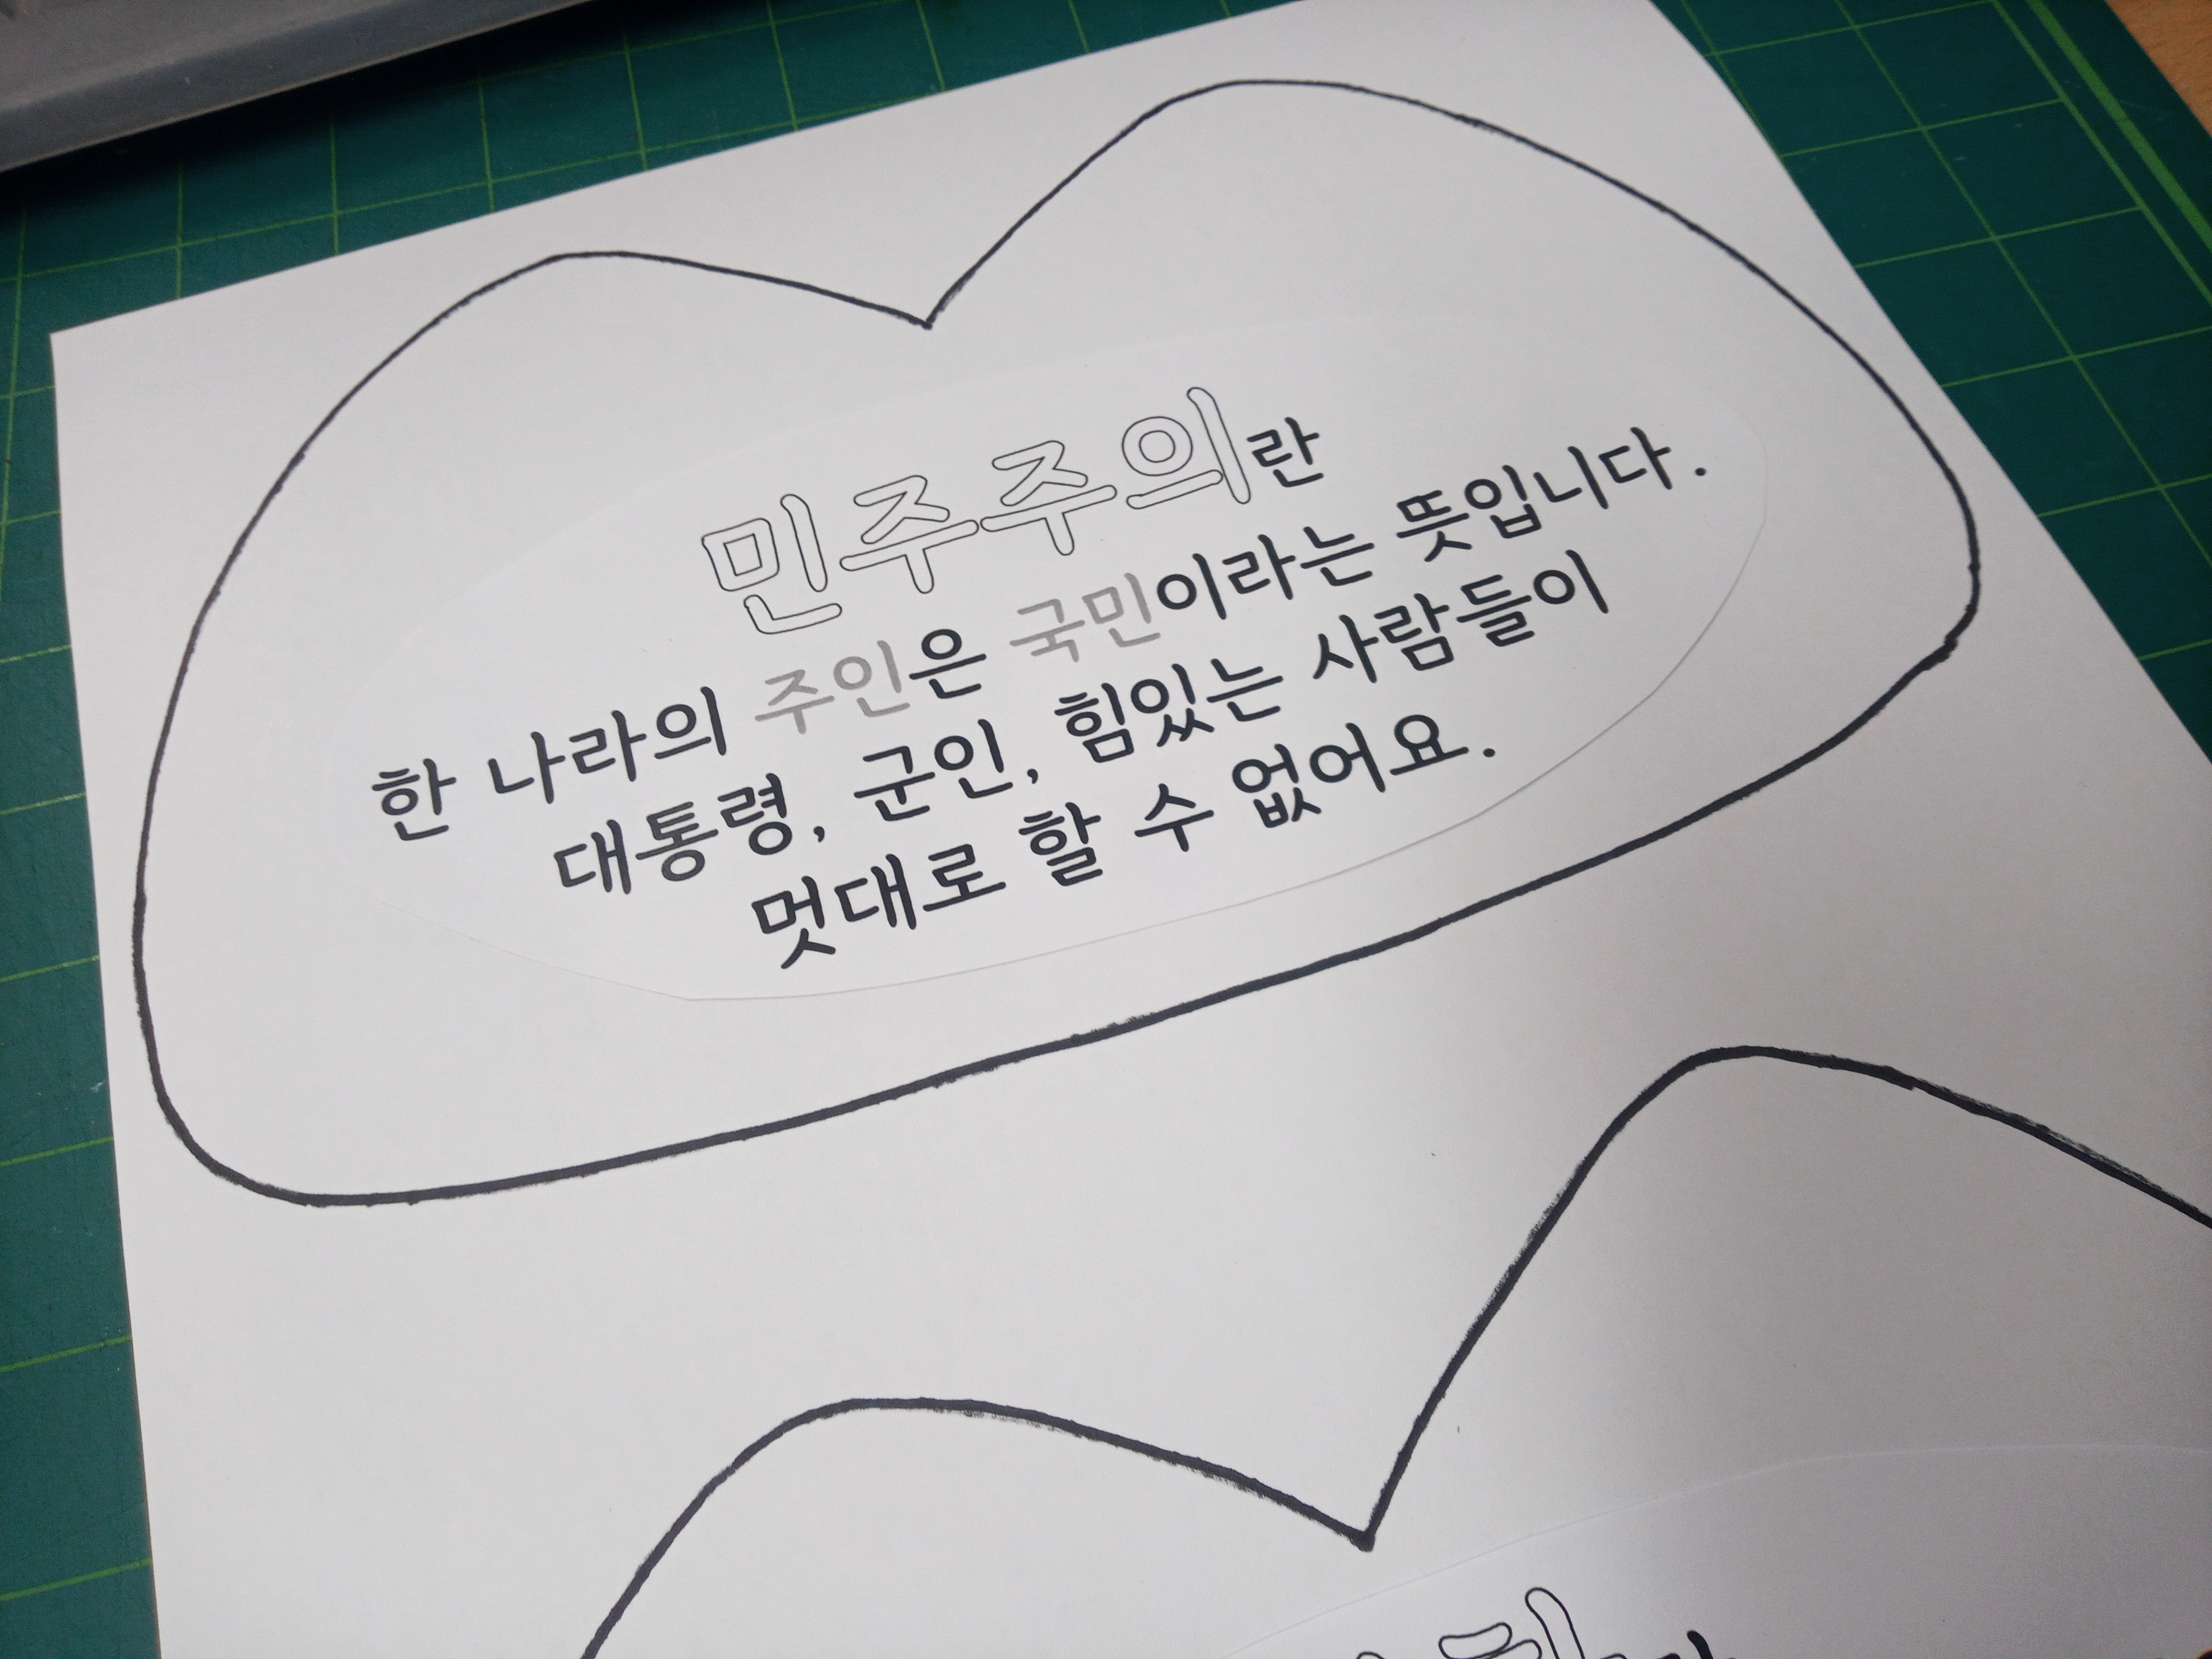 민주주의란
한 나라의 주인은 국민이라는 뜻입니다.
대통령, 군인, 힘있는 사람들이
멋대로 할 수 없어요.